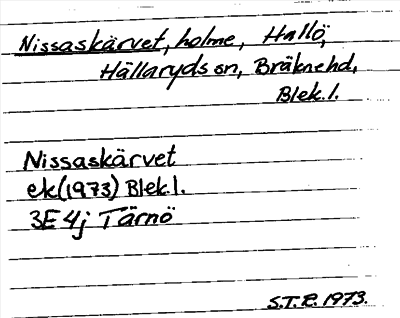 Nissaskärvet, holme, Hallö,
Hällaryds sn, Bräknehd,
Blek.l.
Nissaskärvet
ek (1973) Blek.l.
3E 4j Tärnö
S.T.R. 1973.